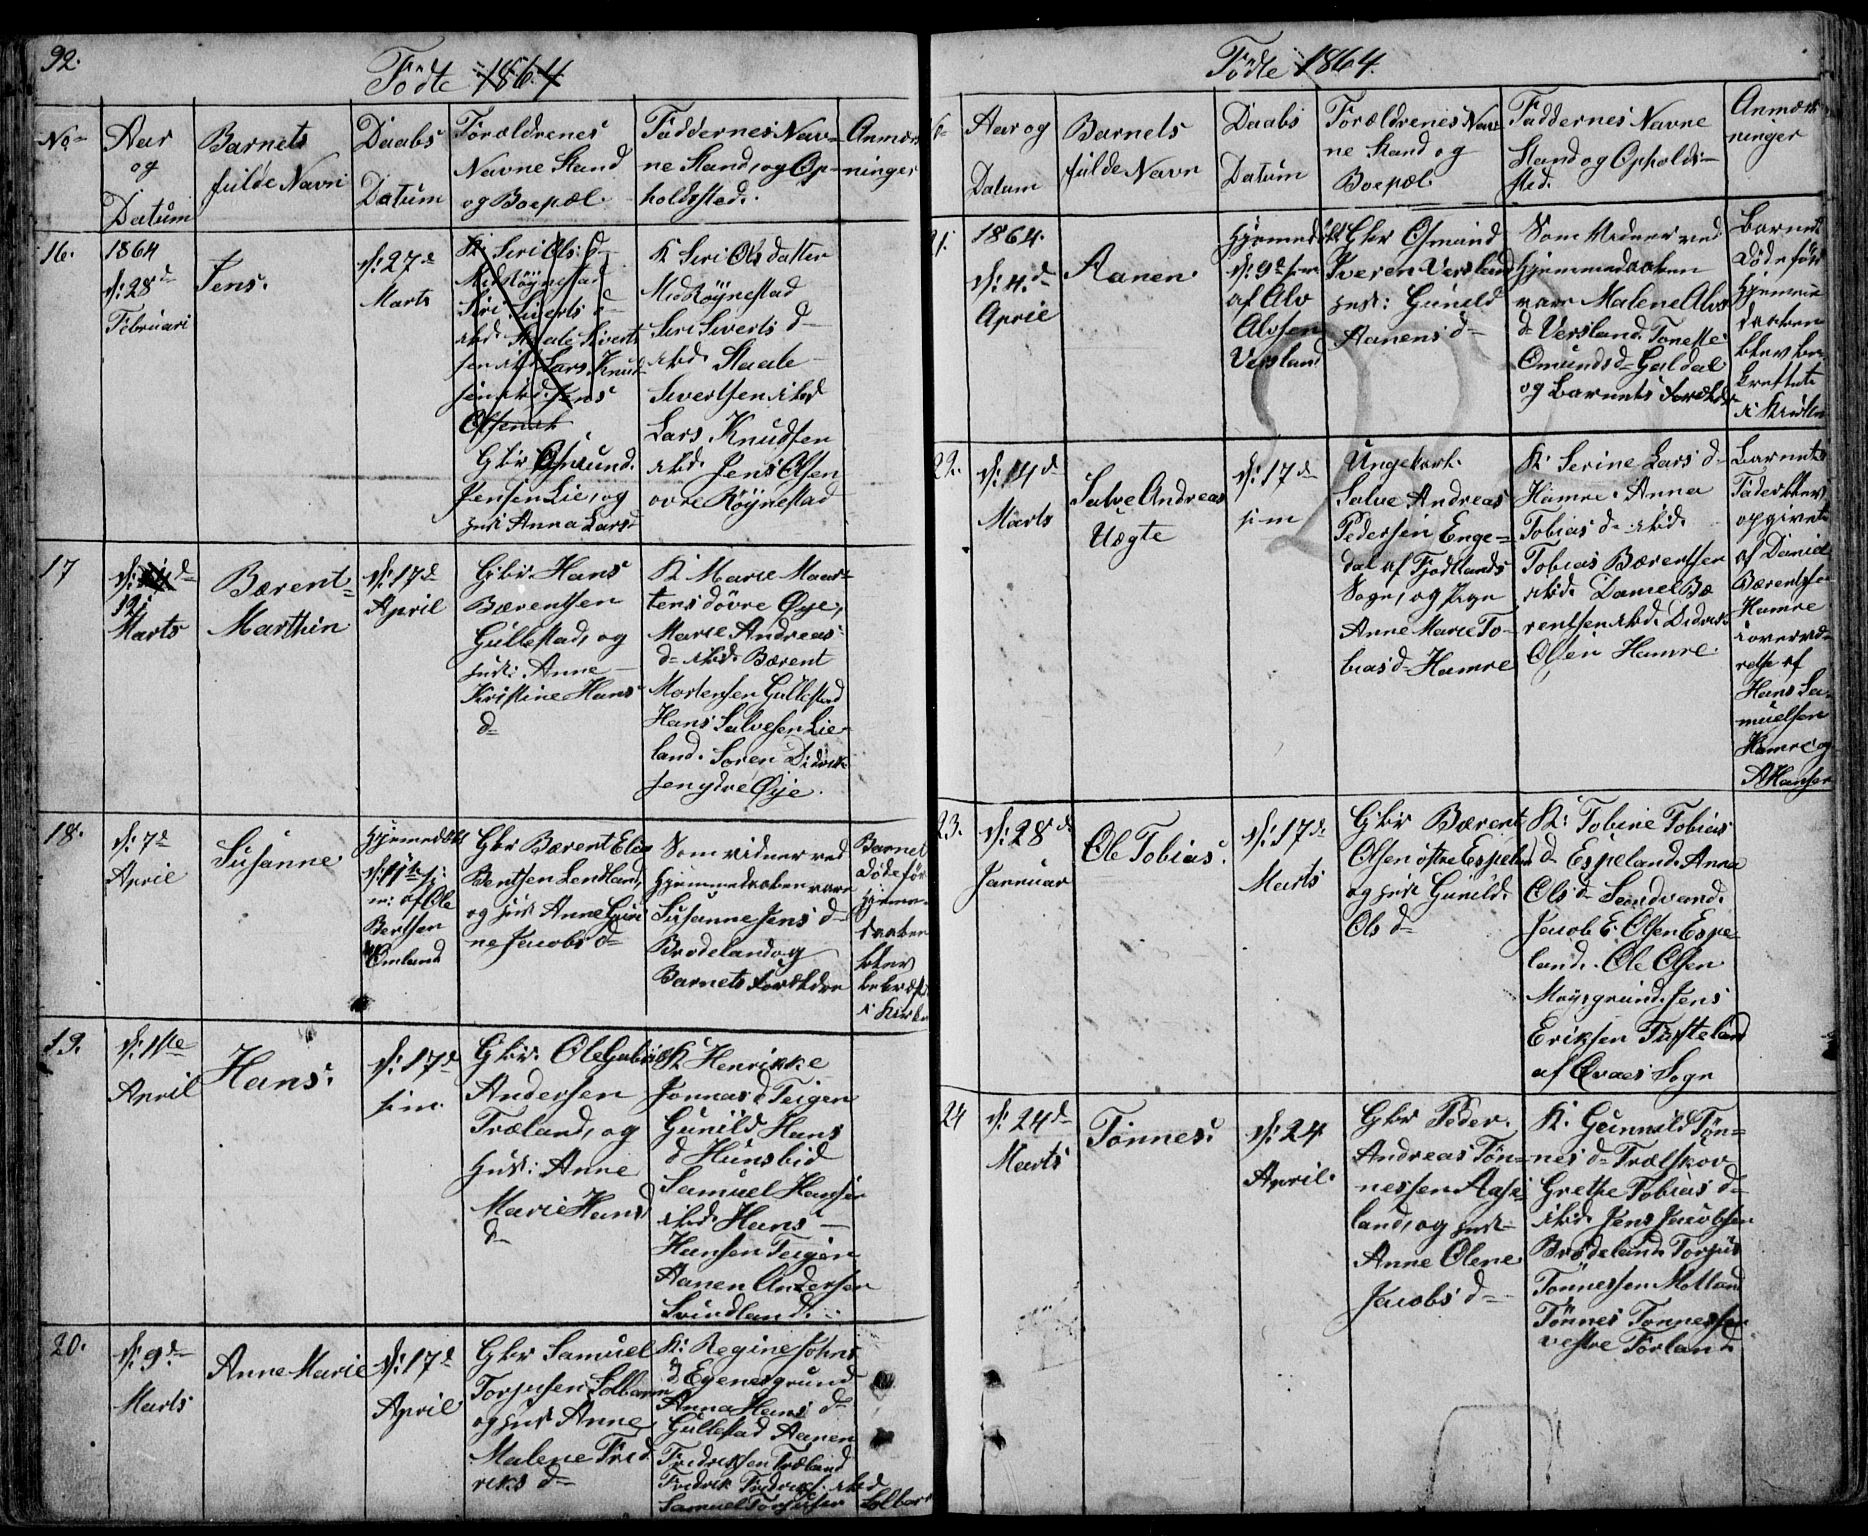 92.
Födte 1864
No
Aar
og
Datum
Barnets
fulde Navn
Daabs
Datum
Forældrenes
Navne Stand
og Boepæl.
Faddernes Nav-
ne Stand, og Op-
holdssted.
Anmærk
ninger
16.
1864
d: 28d
Februari
Jens.
d: 27d
Marts
K Siri Ols: d
Mid Röynestad
Siri Siverts d
ibd. Staale Sivert
sen ibd Lars Knud
sen ibd. Jens
Olsen
Gbr Osmund
Jensen Lie, og
Hust Anna Larsd
K Siri Olsdatter
Mid Röynestad
Siri Siverts d-
ibd. Staale
Sivertsen ibd
Lars Knudsen
ibd. Jens Olsen
ovre Röynestad
17
12
Marts
Bærent
Marthin
d: 17d
April
Gbr. Hans
Bærentsen
Gullestad, og
Hust: Anne
Kristine Hans
d-
K Marie Maar-
tens d övre Øye,
Marie Andreas
d- ibd. Bærent
Mortensen Gullestad
Hans Salvesen Lie-
land. Soren Didrik
sen ydre Øye.
18.
d: 7d
April
Susanne
Hjemedöbt
d: 11te s:
m: af Ole
Bertsen
Omland
Gbr Bærent Elias
Bentsen Lendland,
og Hust Anne Guri
ne Jacobs d-
Som vidner ved
Hjemmedaaben vare
Susanne Jens d-
Brodeland og
Barnets Foreldre
Barnet
döde för
hjemme
daaben
blev
bekræft
i Kirken
19.
d: 1ste
April
Hans.
d: 17d
s: m.
Gbr. Ole Gabriel
Andersen
Træland, og
Hust: Anne
Marie Hans
d-
K Henrikke
Jonnas d Teigen
Gunild Hans
d Hunsbid
Samuel Hansen
ibd. Hans
Hansen Teigen
Aanen Andersen
Svindland.
20.
d: 9d
Marts
Anne Marie
d: 17d
April
Gbr Samuel
Torjusen Solbærn
og Hust Anne
Malene Frid
riks d-
K: Regine Johns
d Egenesgrund
Anna Hans d-
Gullestad Aanen
Fredriksen Træland
Fredrik Fredriks. ibd
Samuel Torjusen Solbær
Födte 1864.
No
Aar og
Datum
Barnets
fulde Navn
Daabs
Datum
Forældrenes Nav
ne Stand og
Boepæl.
Faddernes Navne
Stand og Opholds-
sted.
Anmærk
ninger
21.
1864.
d: 4d
April
Aanen.
Hjemedöbt
d: 9d s: m
af Alv
Alvsen
Versland
Gbr Osmund
Iversen Versland
Hust: Gunild
Aanens d-
Som Vidner ved
Hjemmedaaben
vare Malene Alvs
d- Versland. Tonette
Omunds d- Galdal
og Barnets Foreldre
Barnet
döde för
hjemme
daaben
blev be-
kreftet
i Kirken
22.
d: 14d
Marts
Salve Andreas
Uægte
d: 17d
s: m
Ungekarl
Salve Andreas
Pedersen Enge-
dal af Fjodlands
Sogn, og Pige
Anne Marie To-
bias d- Hamre
K: Serine Lars d-
Hamre. Anna
Tobias d- ibd.
Tobias Bærentsen
ibd. Daniel Bæ
rentsen ibd. Didrik
Olsen Hamre.
Barnets
Fader blev
opgivet
af Daniel
Bærentsen
Hamre
i overvæ-
relse af
Hans Sa-
muelsen
Hamre og
A Hansen
23.
d: 28d
Januar
Ole Tobias.
d: 17d
Marts
Gbr Bærent
Olsen östre Espeland
og Hust Gunild.
Ols d-
K: Tobine Tobias
d Espeland. Anna
Ols d- Sandvand.
Jacob E. Olsen Espe
land. Ole Olsen
Möysgrund. Jens
Eriksen Tufteland
af Qvaes Sogn
24
d: 24d
Marts
Tönnes.
d: 24
April.
Gbr Peder.
Andreas Tön-
nessen Aase
land, og Hust-
Anne Olene
Jacobs d-
K: Gunnild Tön-
nes d- Trælskov
Grethe Tobias d-
ibd. Jens Jacobsen
Brodeland. Torjus
Tönnessen Motland
Tönnes Tonnessen
vestre Förland